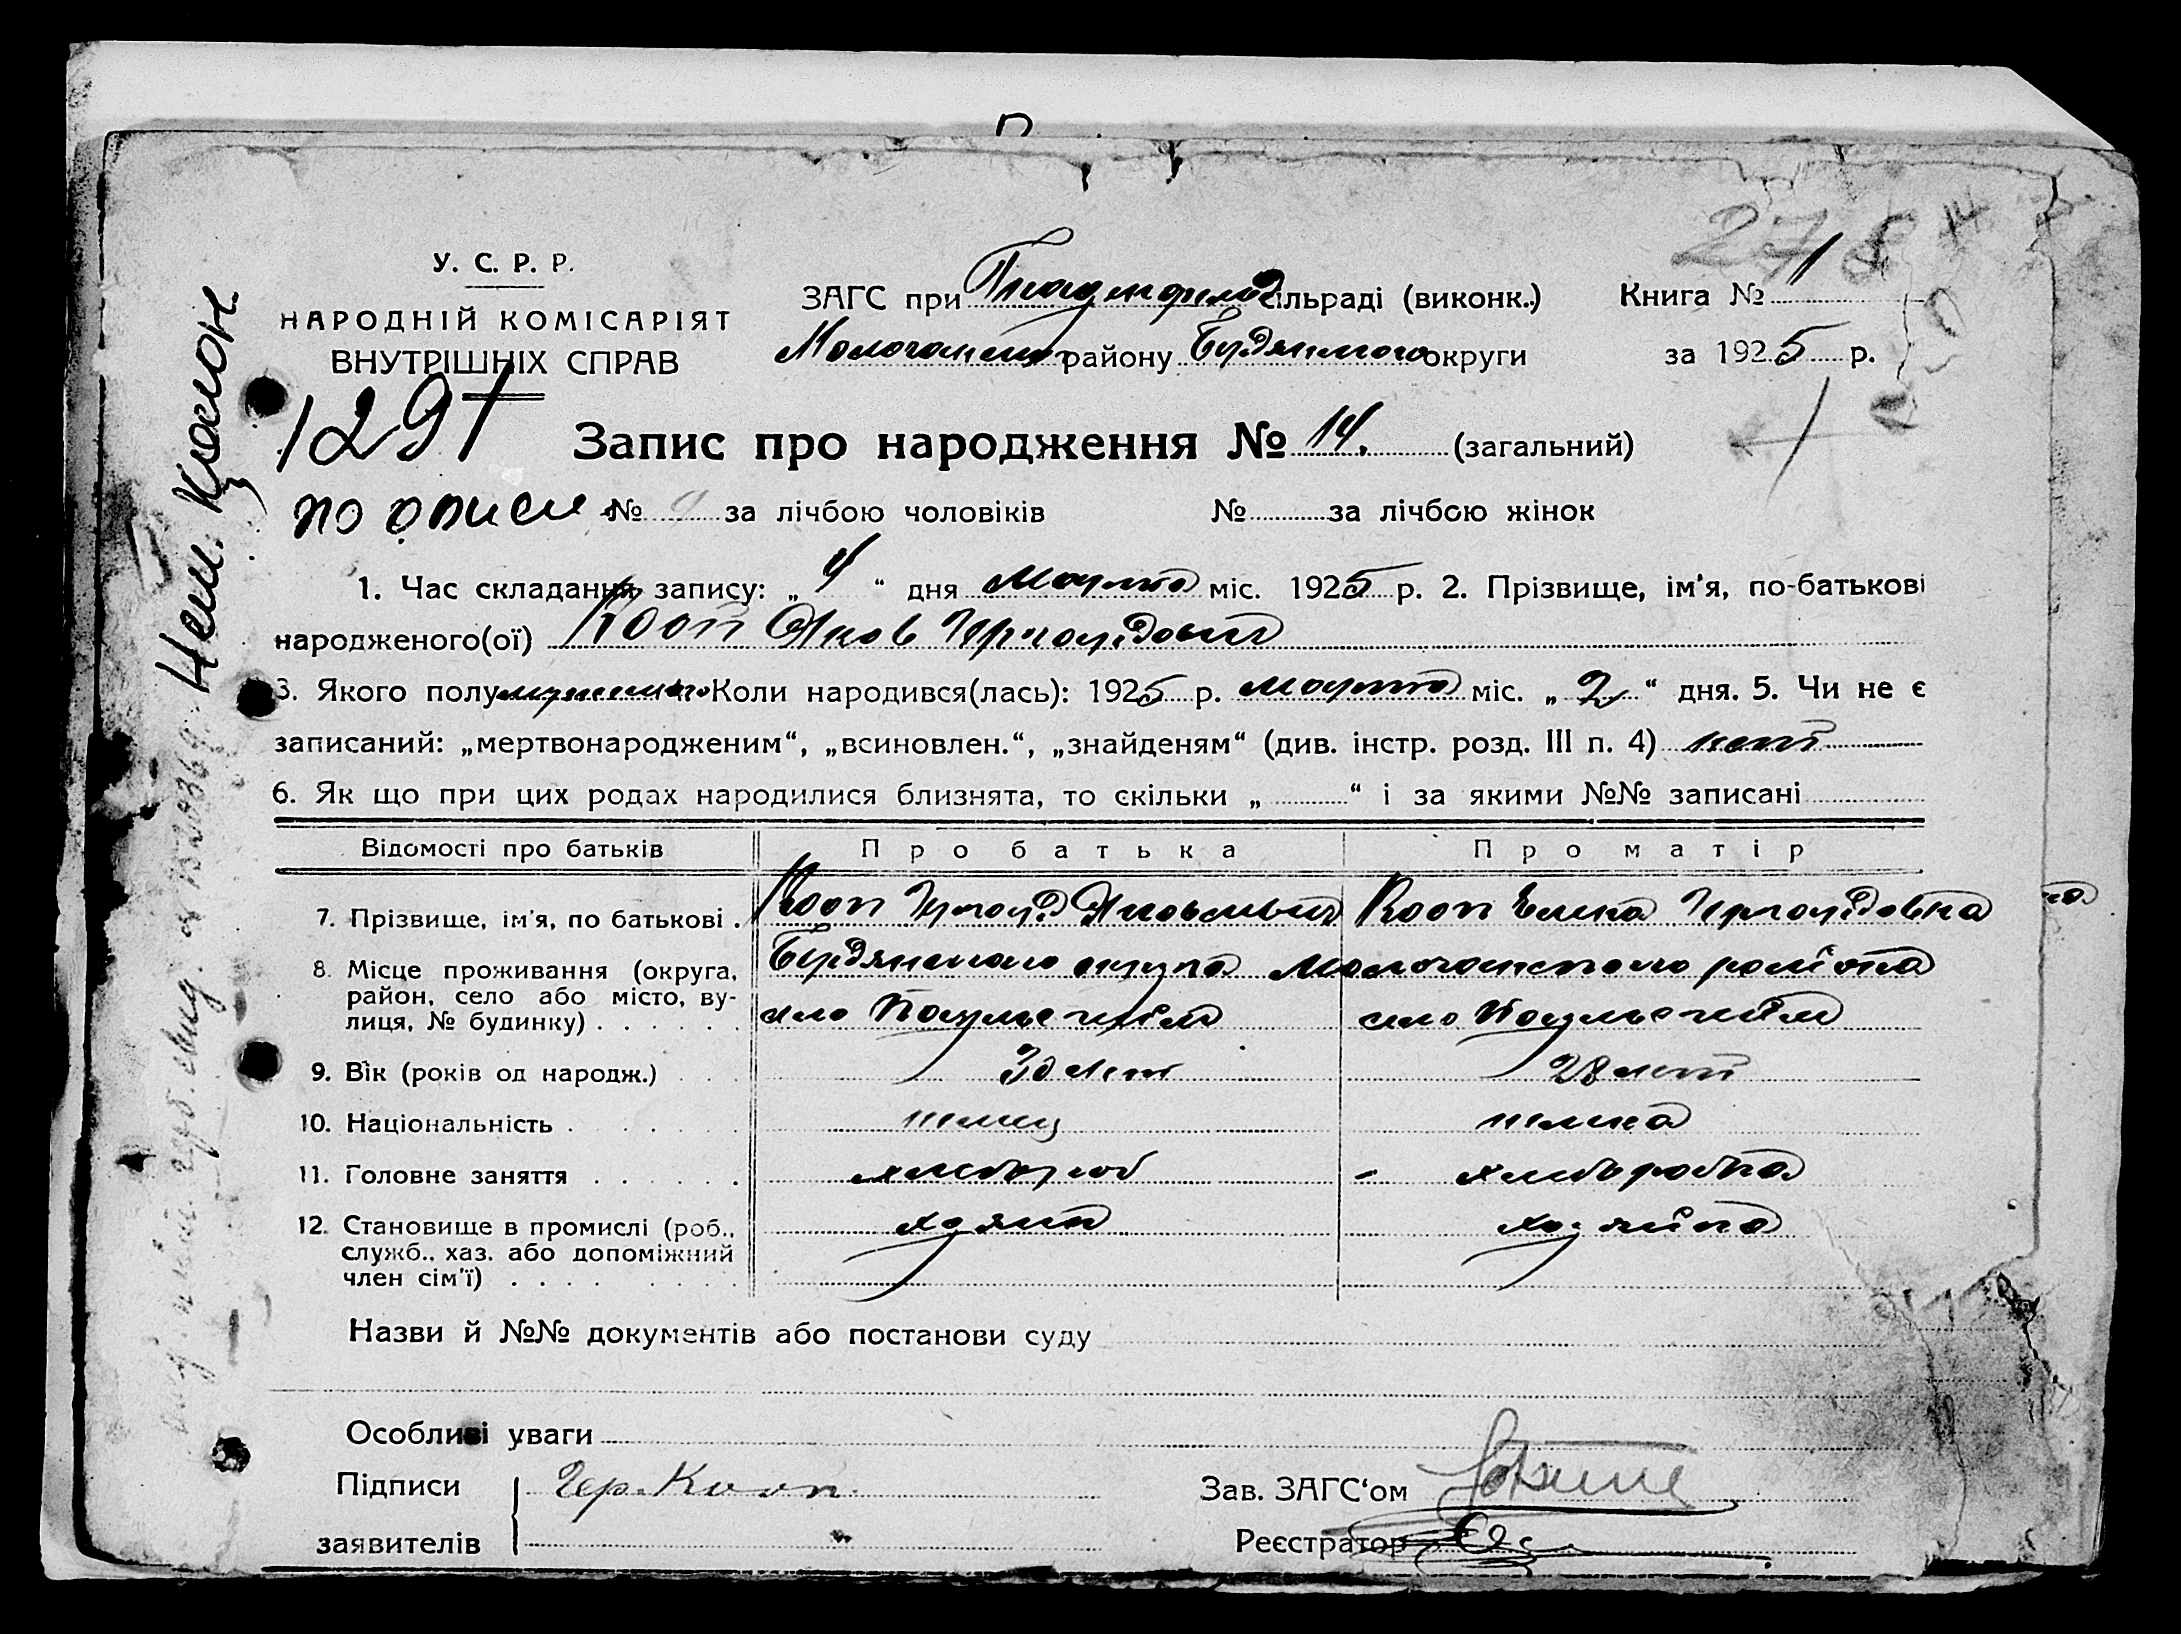 П
278 14
У. С. Р. Р.
НАРОДНІЙ КОМІСАРІЯТ
ВНУТРІШНІХ СПРАВ
ЗАГС при сільраді (виконк.) Книга № 1
району округи за 1925 р.
Нем. колон
129
Запис про народження № 14. (загальний)
по описи № за лічбою чоловіків № за лічбою жінок
1. Час складання запису: „4“ дня Марта міс. 1925 р. 2. Прізвище, ім'я, по-батькові
народженого(ої) Кооп Яков Гергардович
3. Якого полу Коли народився(лась): 1925 р. марта міс. „2“ дня. 5. Чи не є
записаний: „мертвонародженим“, „всиновлен.“, „знайденям“ (див. інстр. розд. III п. 4) нет
6. Як що при цих родах народилися близнята, то скільки „ “ і за якими №№ записані
Відомості про батьків Про батька Про матір
7. Прізвище, ім'я, по батькові . Кооп Гергард Яковлевич Кооп Гергардовна
8. Місце проживання (округа, район, село або місто, вулиця, № будинку) . . . . . . Бердянского округа района
село село
9. Вік (років од народж.) . . . 30 лет 28 лет
10. Національність . . . . . . . немец немка
11. Головне заняття . . . . . . хлебороб - хлеборобка
12. Становище в промислі (роб., служб., хаз. або допоміжний член сім'ї) . . . . . . . . хозяйка
Назви й №№ документів або постанови суду
Особливі уваги
Підписи Гер. Кооп. Зав. ЗАГС'ом
заявителів Реєстратор